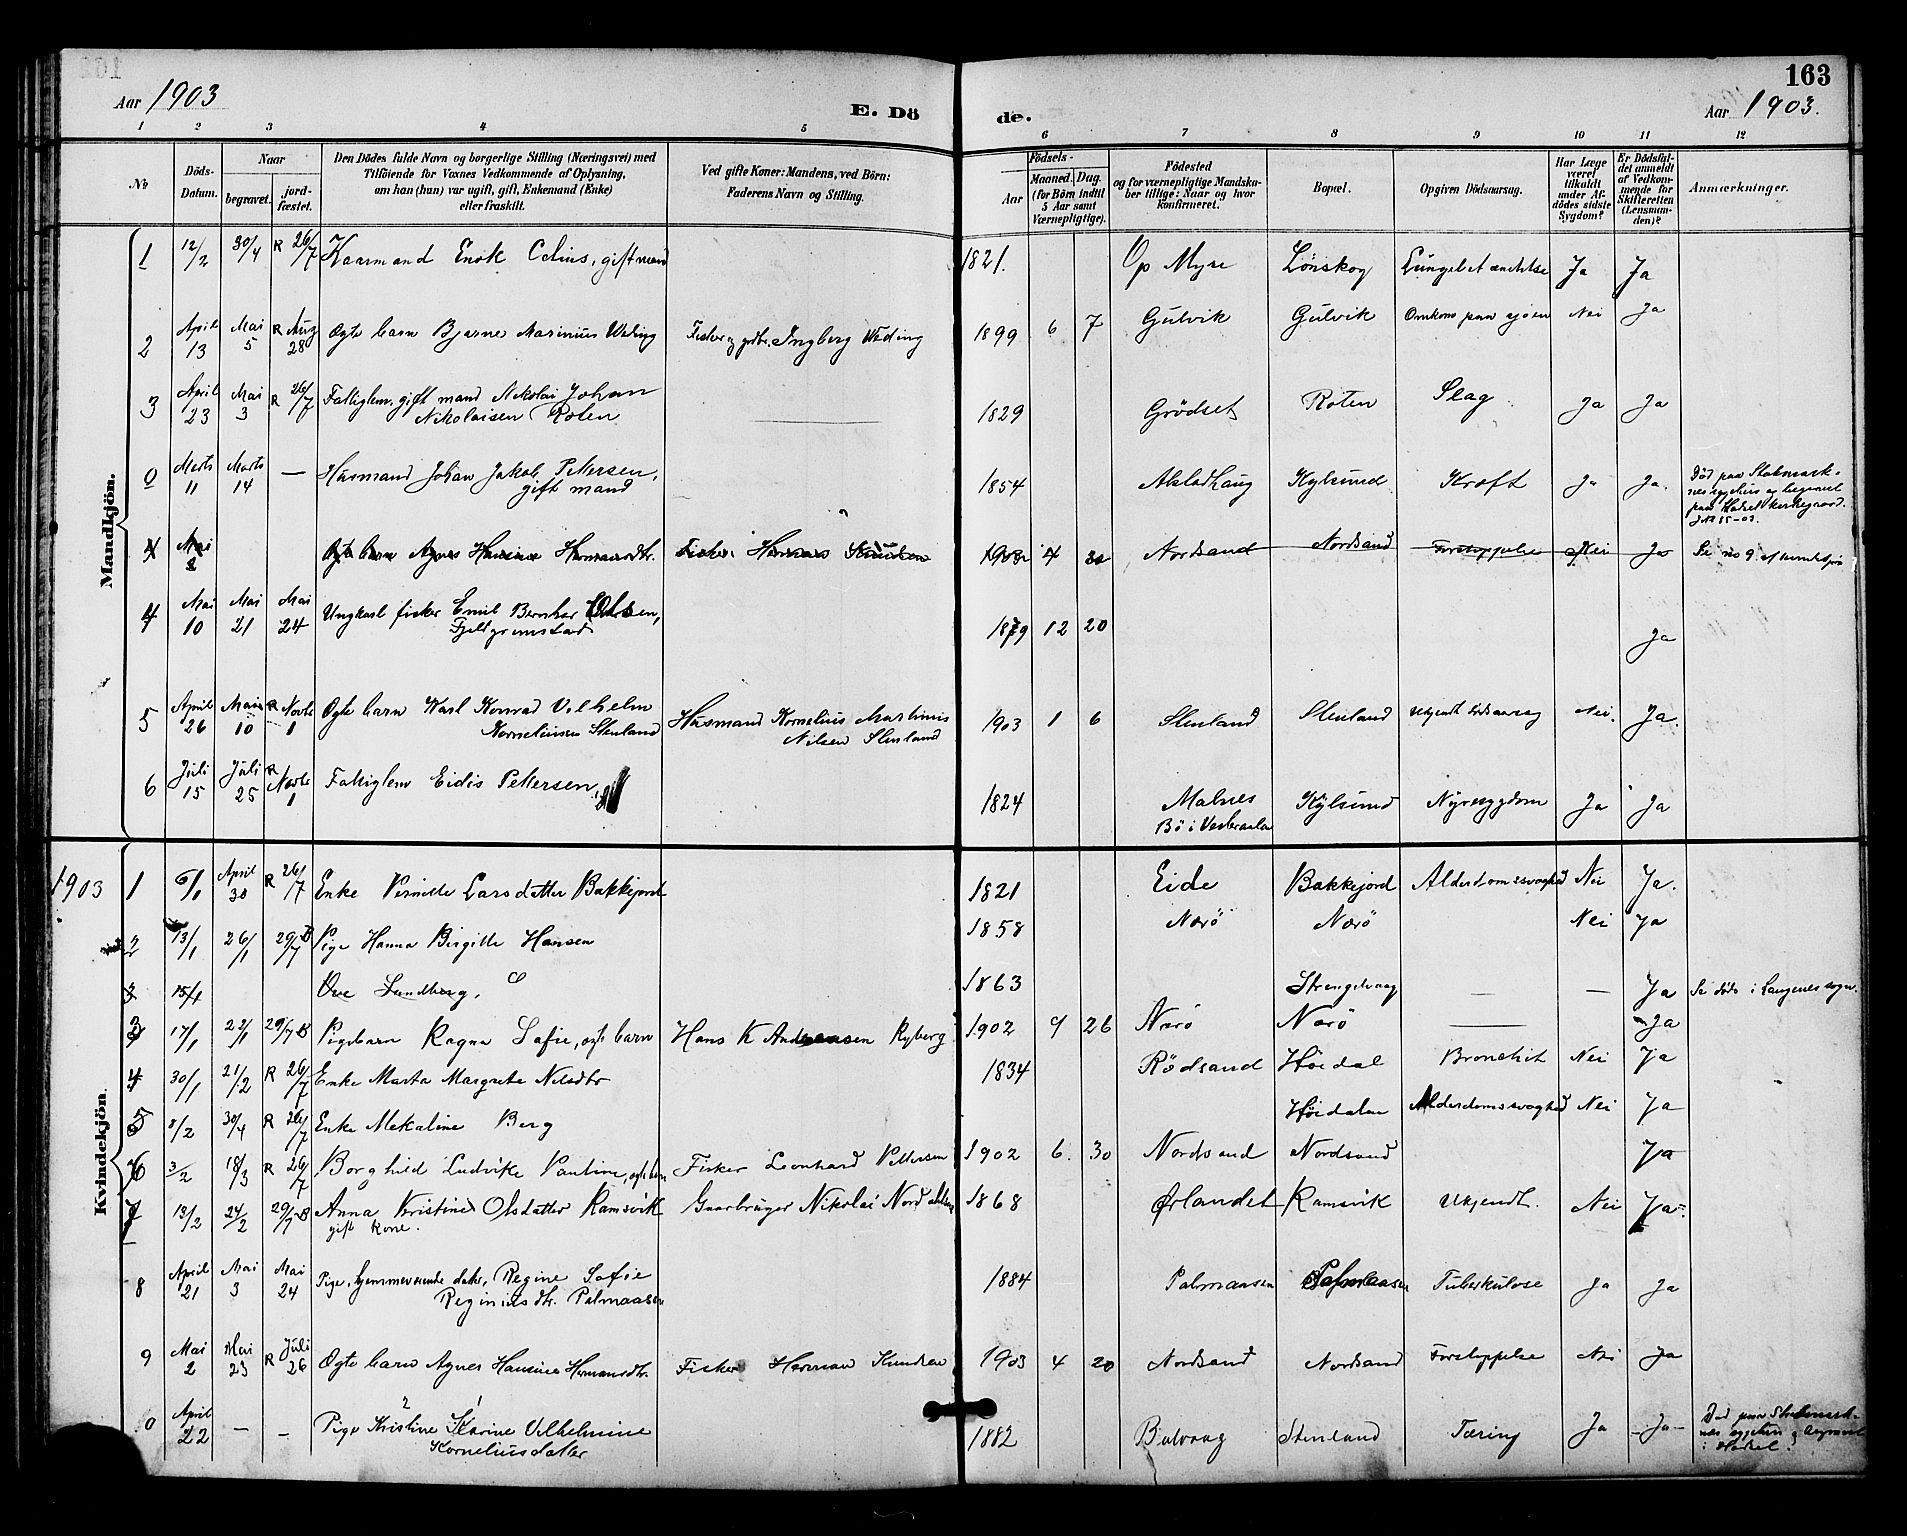 163
Aar 1903
E. Dö
de.
Aar 1903.
1 2 3 4 5 6 7 8 9 10 11 12
No
Döds-
Datum.
Naar
begravet.
jord-
fæstet.
Den Dödes fulde Navn og borgerlige Stilling (Næringsvei) med
Tilföiende for Voxnes Vedkommende af Oplysning,
om han (hun) var ugift, gift, Enkemand (Enke)
eller fraskilt.
Ved gifte Koner: Mandens, ved Börn:
Faderens Navn og Stilling.
Födsels-
Aar
Maaned. Dag.
(for Börn indtil
5 Aar samt
Værnepligtige).
Födested
og for værnepligtige Mandska-
ber tillige: Naar og hvor
konfirmeret.
Bopæl.
Opgiven Dödsaarsag.
Har Læge
været
tilkaldt
under Af-
dödes sidste
Sygdom?
Er Dödsfal-
det anmeldt
af Vedkom-
mende for
Skifteretten
(Lensman-
den)?
Anmærkninger.
Mandkjön.
1 12/2 30/4 R 26/7 Kaarmand Enok Celius, gift mand 1821. Op Myre Lönskog Ja Ja
2 April 13 Mai 5 R Aug 28 Ogte barn Bjarne Marinius Weding Fisker og grdbr. Ingberg Weding 1899 6 7 Gulvik Gulvik Omkom paa sjöen Nei Ja
3 April 23 Mai 3 R 26/7 Fattiglem, gift mand Nikolai Johan
Nikolaisen Roten 1829 Grödset Roten Slag Ja Ja
0 Marts 11 Marts 14 — Husmand Johan Jakob Pettersen,
gift mand 1854 Alstadhaug Kylsund Kræft Ja Ja. Död paa Stokmark-
nes sygehus og begravet
paa Hadsel kirkegaard.
4 Mai 2 Ogte barn Agnes Hansine Hermansdtr. Fisker Herman Knudsen 1903 4 20 Nordsand Nordsand Forstoppelse Nei Ja Se no 9 af kvindekjön
4 Mai 10 Mai 21 Mai 24 Ungkarl fisker Emil Bernhar Olsen,
Fjeldgrimstad 1879 12 20 Ja
5 April 26 Mai 10 R Novbr 1 Ogte barn Karl Konrad Vilhelm
Korneliussen Stenland Husmand Kornelius Martinus
Nilsen Stenland 1903 1 6 Stenland Stenland Ukjendt dödsaarsag Nei. Ja.
6 Juli 15 Juli 25 R Novbr 1 Fattiglem Eidis Pettersen, 1824 Malnes
Bö i Vesteraalen Kylsund Nyresygdom Ja Ja
Kvindekjön.
1903 1 6/1 April 30 R 26/7 Enke Larsdatter Bakkejord 1821 Eide Bakkejord Alderdomssvaghed Nei Ja.
2 13/1 26/1 29/7 B Pige Hanna Birgitte Hansen 1858 Nærö Nærö Nei Ja
3 15/1 Ove Lundberg, 1863 Strengelvaag — — Ja Se döde i Langenes sogn.
3 17/1 22/1 29/7 B Pigebarn Ragna Sofie, ogte barn Hans K Andreassen Ryberg 1902 9 26 Nærö Nærö — Ja
4 30/1 21/2 R 26/7 Enke Marta Margrete Nilsdtr 1834 Rödsand Höidal Bronchit Nei Ja
5 8/2 30/4 R 26/7 Enke Mekaline Berg Höidalen Alderdomssvaghed Nei Ja
6 3/2 18/3 R 26/7 Borghild Ludvikke Pauline, ogte barn Fisker Leonhard Pettersen 1902 6. 30 Nordsand Nordsand Ja
7 13/2 24/2 29/7 B Anna Kristine Olsdatter Ramsvik
gift kone. Gaardbruger Nikolai 1868 Ørlandet Ramsvik Ukjendt. Nei Ja.
8 April 21 Mai 3 Mai 24 Pige, hjemmeværende datter, Regine Sofie
Reginiusdtr. Palmaasen 1884 Palmaasen Palmaasen Tuberkulose Ja Ja
9 Mai 2 Mai 23 R Juli 26 Ogte barn Agnes Hansine Hermansdtr. Fisker Herman Knudsen 1903 4 20 Nordsand Nordsand Forstoppelse Nei Ja
0 April 22 — — Pige Kristine Karine Vilhelmine
Korneliusdatter 1882 Bulvaag Stenland Tæring Ja Ja Död paa Stokmark-
nes sygehus og begravet
i Hadsel.